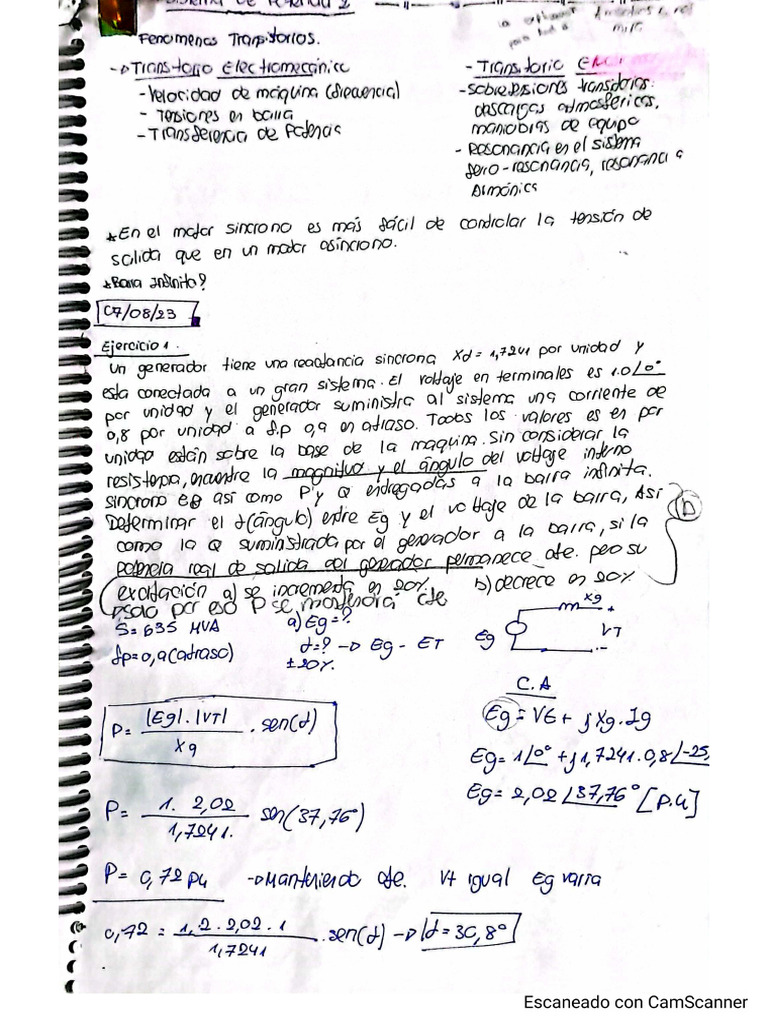 Sistema de Potencia 2
Fenomenos Transitorios.
-> Transitorio Electromecánico
- Velocidad de máquina (frecuencia)
- Tensiones en barra
- Transferencia de Potencia
- Transitorio
- Sobretensiones transitorias
descargas atmosfericas,
maniobras de equipo
- Resonancia en el sistema
fero-resonancia, resonancia
Armónica
* En el motor sincrono es más fácil de controlar la tensión de
salida que en un motor asincrono.
* Barra Infinita?
07/08/23
Ejercicio 1.
Un generador tiene una reactancia sincrona Xd = 1,7241 por unidad y
esta conectada a un gran sistema. El voltaje en terminales es 1.0∠0°
por unidad y el generador suministra al sistema una corriente de
0,8 por unidad a f.p 0,9 en atraso. Todos los valores es en por
unidad están sobre la base de la maquina. Sin considerar la
resistencia, encuentre la magnitud y el ángulo del voltaje interno
sincrono Eg así como P y Q entregadas a la barra infinita.
Determinar el d (ángulo) entre Eg y el voltaje de la barra, Asi
como la Q suministrada por el generador a la barra, si la
potencia real de salida del generador permanece cte. pero su
excitación a) se incrementa en 20% b) decrece en 20%
por eso P se mantendrá cte
S = 635 MVA
fp = 0,9 (atraso)
a) Eg = ?
d = ? -> Eg - ET
±20%.
Eg
Xg
+
VT
-
P = |Eg|.|VT| / Xg . sen(d)
C.A
Eg = VE + jXg.Ig
Eg = 1∠0° + j1,7241.0,8∠-25,
Eg = 2,02∠37,76° [P.U]
P = 1. 2,02 / 1,7241. sen(37,76°)
P = 0,72 pu -> Manteniendo cte. Vt igual Eg varia
0,72 = 1,2.2,02.1 / 1,7241 . sen(d) -> d = 30,8°
Escaneado con CamScanner